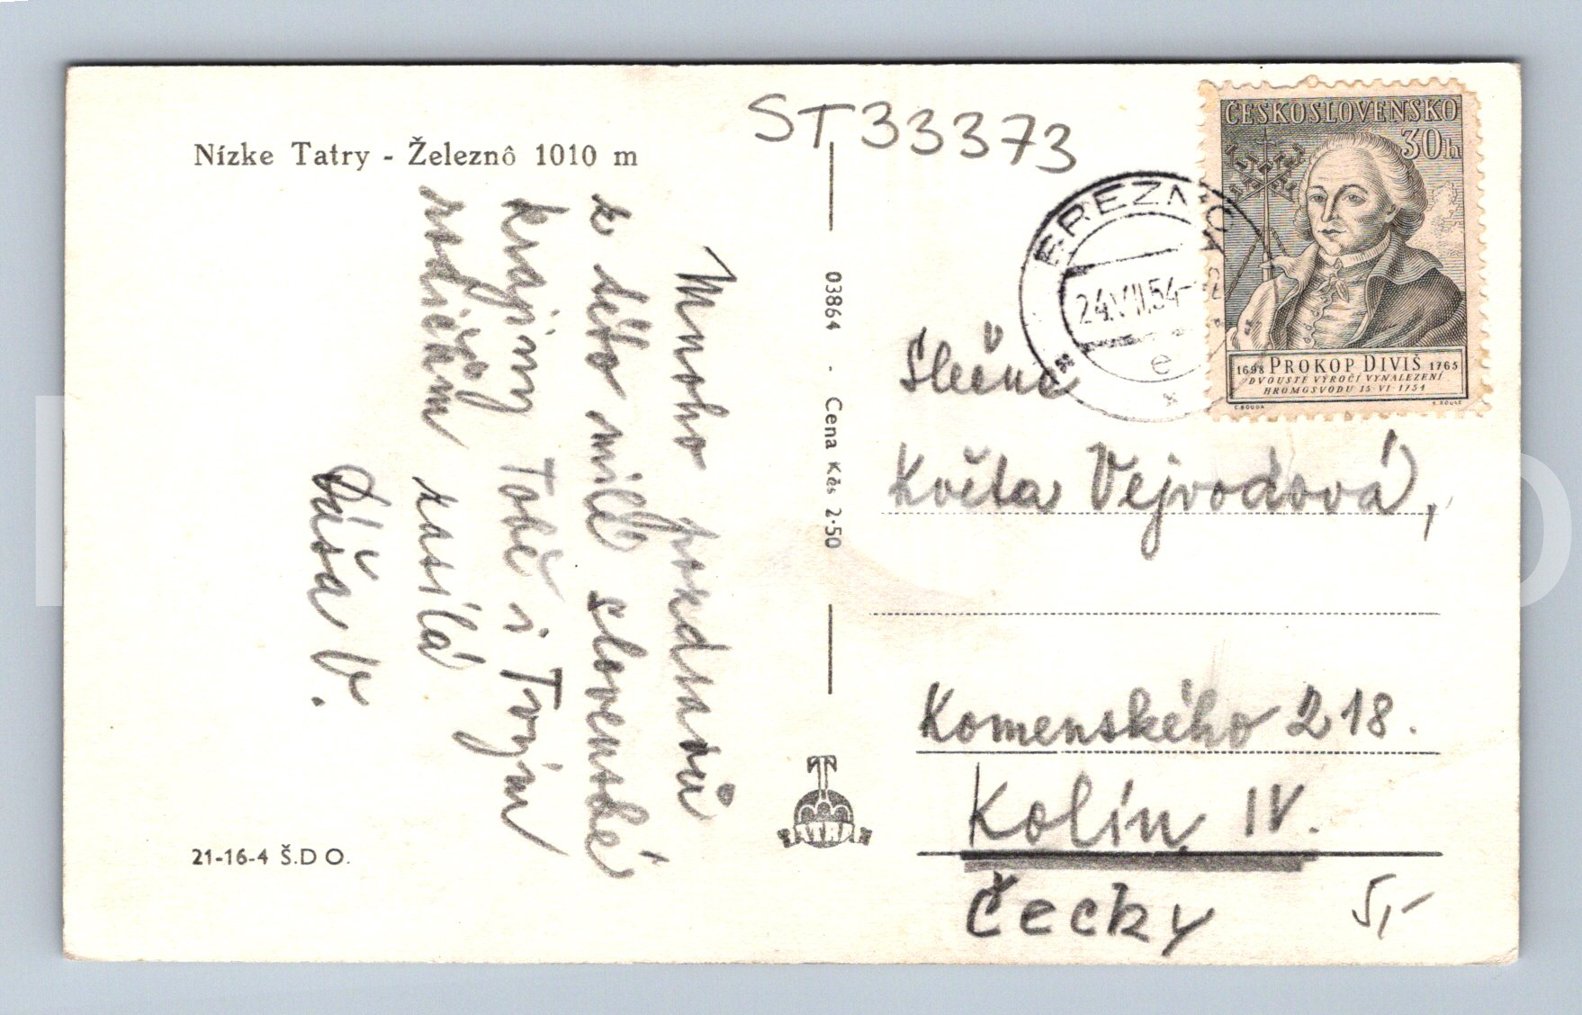 Nízke Tatry - Železnô 1010 m
ST 33373
Mnoho pozdravů
z této milé slovenské
krajiny Tobě i Tvým
rodičům zasílá
Dáša V.
21-16-4 Š.D O.
03864 - Cena Kčs 2·50
TATRAN
BREZNO
24.VII.54
e
ČESKOSLOVENSKO
30h
1698 PROKOP DIVIŠ 1765
DVOUSTÉ VÝROČÍ VYNALEZENÍ
HROMOSVODU 15 VI 1754
Slečna
Květa Vejvodová,
Komenského 218.
Kolín IV.
Čechy
5,-